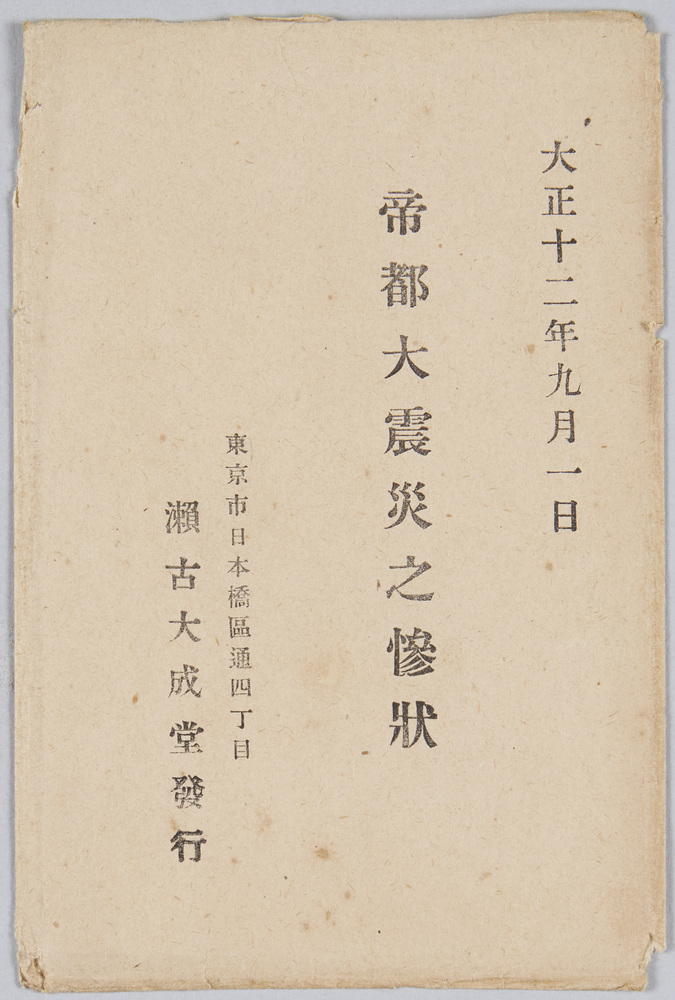 大正十二年九月一日
帝都大震災之慘狀
東京市日本橋區通四丁目
瀨古大成堂發行